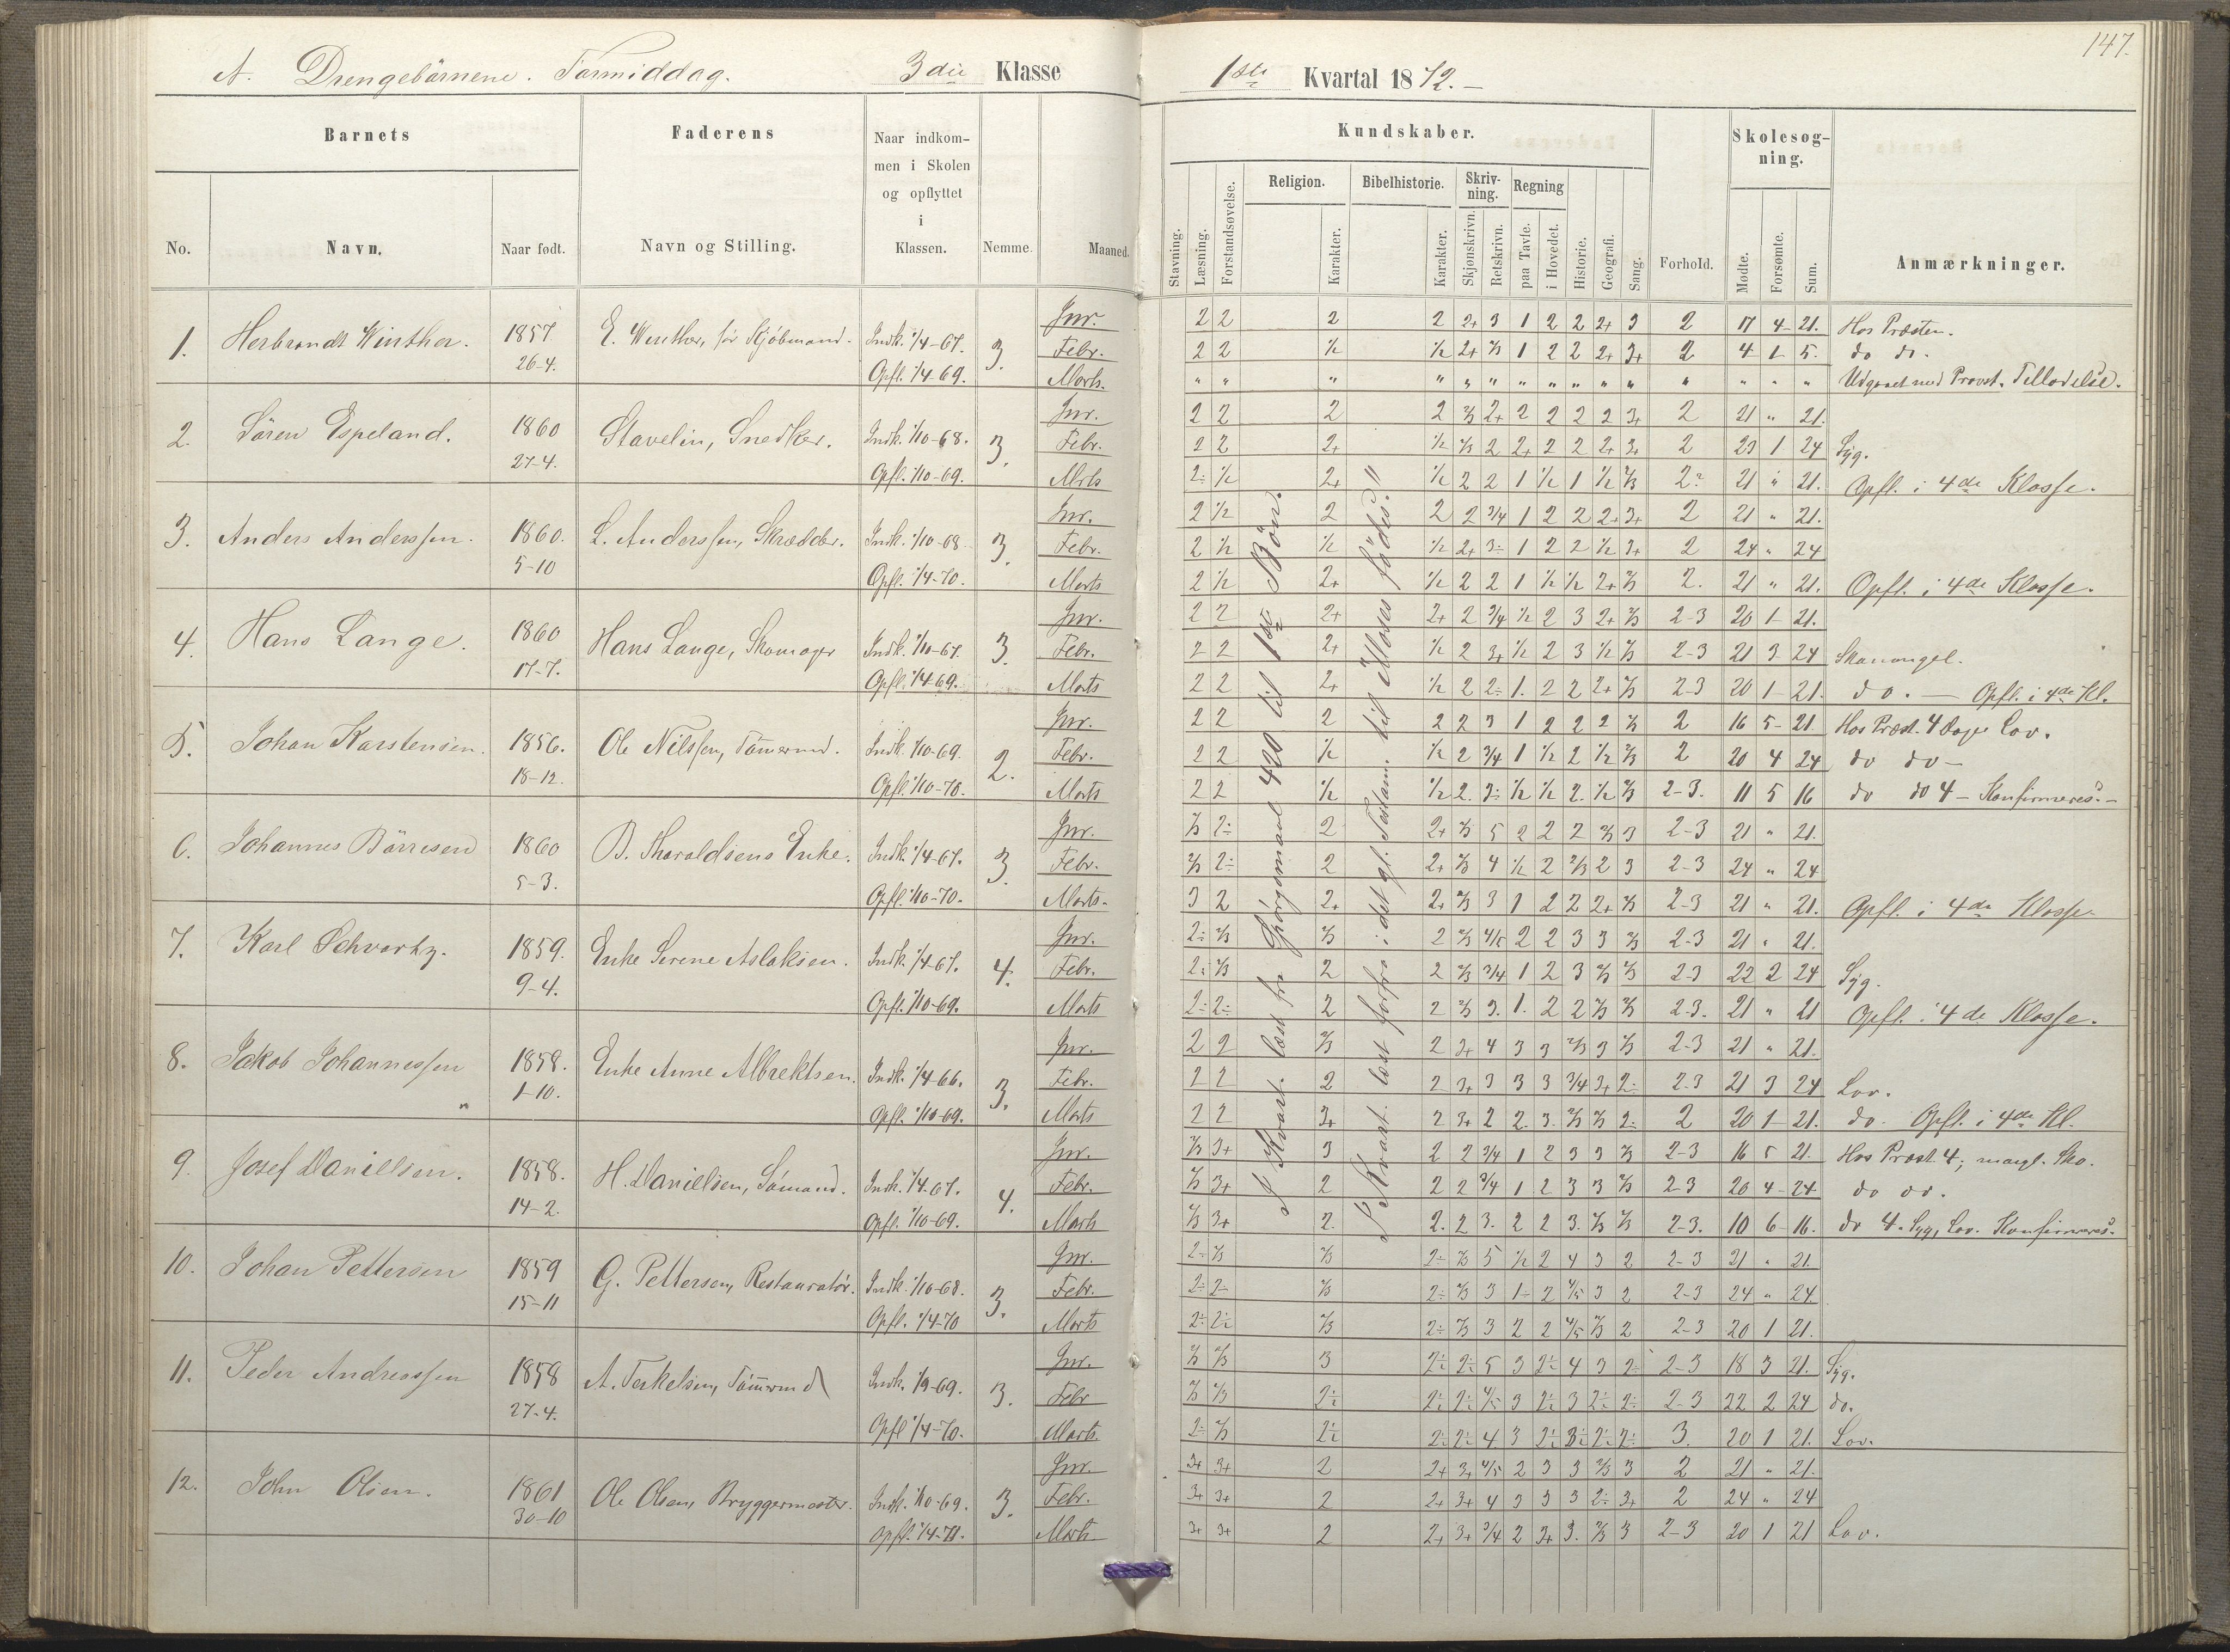 147.
A. Drengebörnene. Formiddag. 3die Klasse 1ste Kvartal 1872.
Barnets Faderens Naar indkommen i Skolen og opflyttet i Klassen. Nemme. Maaned.
No. Navn. Naar født. Navn og Stilling.
Kundskaber. Skolesøgning.
Stavning. Læsning. Forstandsøvelse. Religion. Karakter. Bibelhistorie. Karakter. Skrivning. Skjønskrivn. Retskrivn. Regning paa Tavle. i Hovedet. Historie. Geografi. Sang. Forhold. Mødte. Forsømte. Sum. Anmærkninger.
1. Herbrandt Winther. 1857. 26-4. E. Winther, för Kjöbmand. Indk. 1/4-67. Opfl. 1/4-69. 3.
Jnr. 2 2 2 2 2+ 3 1 2 2 2+ 3 2 17 4 21. Hos Præsten.
Febr. 2 2 1/2 1/2 2+ 2/3 1 2 2 2+ 3+ 2 4 1 5. do do.
Marts. " " " " " " " " " " " " " " " Udgaaet med Provst. Tilladelse.
2. Sören Espeland. 1860 27-4. Stavelin, Snedker. Indk. 1/10-68. Opfl. 1/10-69. 3.
Jnr. 2 2 2 2 2/3 2+ 2 2 2 2 3+ 2 21 " 21.
Febr. 2 2 2+ 1/2 2/3 2 2+ 2 2 2+ 3+ 2 23 1 24 Syg.
Mrts 2÷ 1/2 2+ 1/2 2 2 1 1/2 1 1/2 2/3 2. 21 " 21. Opfl. i 4de Klasse.
3. Anders Anderssen. 1860. 5-10 L. Anderssen, Skrædder. Indk. 1/10-68. Opfl. 1/4-70. 3.
Jnr. 2 1/2 2 2 2 3/4 1 2 2 2+ 3+ 2 21 " 21.
Febr. 2 1/2 1/2 1/2 2+ 3÷ 1 2 2 1/2 3+ 2 24 " 24
Marts 2 1/2 2+ 1/2 2 2 1 1/2 1/2 2+ 2/3 2. 21 " 21. Opfl. i 4de Klasse.
4. Hans Lange. 1860 17-7. Hans Lange, Skomager Indk. 1/10-67. Opfl. 1/4 69. 3.
Jnr. 2 2 2+ 2+ 2 3/4 1/2 2 3 2+ 2/3 2-3 20 1 21.
Febr. 2 2 2+ 1/2 2 3+ 1/2 2 3 1/2 2/3 2-3 21 3 24 Skomangel.
Marts 2 2 2+ 1/2 2 2÷ 1. 2 2 2+ 2/3 2-3 20 1 21. do. — Opfl. i 4de Kl.
5. Johan Karstensen. 1856. 18-12. Ole Nilssen, Tömmermd. Indk. 1/10-69. Opfl. 1/10-70. 2.
Jnr. 2 2 2 2 2 3 1 2 2 2 2/3 2 16 5 21 Hos Præst. 4 dage Lov.
Febr. 2 2 1/2 1/2 2 3/4 1 1/2 2 1/2 2/3 2 20 4 24 do do —
Marts 2 2 1/2 1/2 2. 3÷ 1/2 1/2 2. 1/2 2/3 2-3. 11 5 16 do do 4 — Konfirmeres. —
6. Johannes Börresen 1860 5-3. B. Tharaldsens Enke. Indk. 1/4-67. Opfl. 1/10-70. 3.
Jnr. 2/3 2÷ 2 2+ 2/3 5 2 2 2 2/3 3 2-3 21 " 21.
Febr. 2/3 2÷ 2 2+ 2/3 4 1/2 2 2/3 2 3 2-3 24 " 24
Marts. 3 2 2+ 2+ 2/3 3 1 2 2 2+ 2/3 2-3 21 " 21. Opfl. i 4de Klasse.
7. Karl Schvartz. 1859. 9-4. Enke Serene Aslaksen. Indk. 1/4-67. Opfl. 1/10-69. 4.
Jnr. 2÷ 2/3 2/3 2 2/3 4/5 2 2 3 3 2/3 2-3 21 " 21.
Febr. 2÷ 2/3 2 2 2/3 3/4 1 2 3 2/3 2/3 2-3 22 2 24 Syg.
Marts 2÷ 2÷ 2 2 2/3 3. 1. 2 2 2/3 2/3 2-3. 21 " 21 Opfl. i 4de Klasse.
8. Jakob Johannessen 1858. 1-10. Enke Anne Albrektsen. Indk. 1/4-66. Opfl. 1/10-69. 3.
Jnr. 2 2 2/3 2 3+ 4 3 3 2/3 3 2/3 2-3 21 " 21.
Febr. 2 2 2 2 3+ 3 3 3 3/4 3+ 2÷ 2-3 21 3 24 Lov.
Marts 2 2 3+ 2 3+ 2 2. 3. 2/3 2/3 2÷ 2 20 1 21. do. Opfl. i 4de Kl.
9. Josef Danielsen. 1858. 14-2. H. Danielsen, Sömand. Indk. 1/4-67. Opfl. 1/10-69. 4.
Jnr. 2/3 3+ 3 2 2 3/4 1 2 3 3 2/3 2-3 16 5 21. Hos Præst. 4; mangl. Sko.
Febr. 2/3 3+ 2 2 2 3/4 1 2 3 3 2/3 2-3 20 4 24 do do.
Marts 2/3 3+ 2. 2. 2 3. 2 2 3. 2/3 2/3 2-3. 10 6 16. do 4. Syg, Lov. Konfirmeres.
10. Johan Pettersen 1859 15-11 G. Pettersen, Restauratör. Indk. 1/10-68. Opfl. 1/4-70 3.
Jnr. 2÷ 2/3 2/3 2÷ 2/3 5 1/2 2 4 3 2 2-3 21 " 21.
Febr. 2÷ 2÷ 2/3 2÷ 2/3 3 1÷ 2 4/5 3 2 2-3 24 " 24
Marts 2÷ 2÷ 2/3 2÷ 2/3 3 2 2 4/5 2/3 2 2-3 20 1 21.
11. Peder Andreassen 1858 27-4. A. Terkelsen, Tömmermd Indk. 1/9-69. Opfl 1/4-70. 3.
Jnr. 2/3 2/3 3 2÷ 2÷ 5 3 2÷ 4 3 2÷ 2-3 18 3 21. Syg.
Febr 2/3 2/3 2÷ 2÷ 2÷ 4/5 3 2÷ 3 2÷ 2÷ 2-3 22 2 24 do.
Marts. 2÷ 2/3 2÷ 2÷ 2÷ 4 3 2÷ 3÷ 2÷ 2÷ 3. 20 1 21. Lov.
12. John Olsen. 1861 30-10 Ole Olsen, Bryggermester. Indk. 1/10-69. Opfl. 1/4-71. 3.
Jnr. 3+ 3+ 2 2+ 3+ 4/5 2 3 3 2/3 3 2 21 " 21.
Febr. 3+ 3+ 2 2+ 3+ 4 3 3 3 2÷ 3+ 2 24 " 24
Marts 3+ 3+ 2 2+ 3+ 3/4 2 3+ 3. 2/3 3 2-3 20 1 21 Lov.
I Kvart. læst fra Spörgsmaal 420 til 1ste Bön.
I Kvart. læst forfra i det gl. Testam. til Moses födes!!